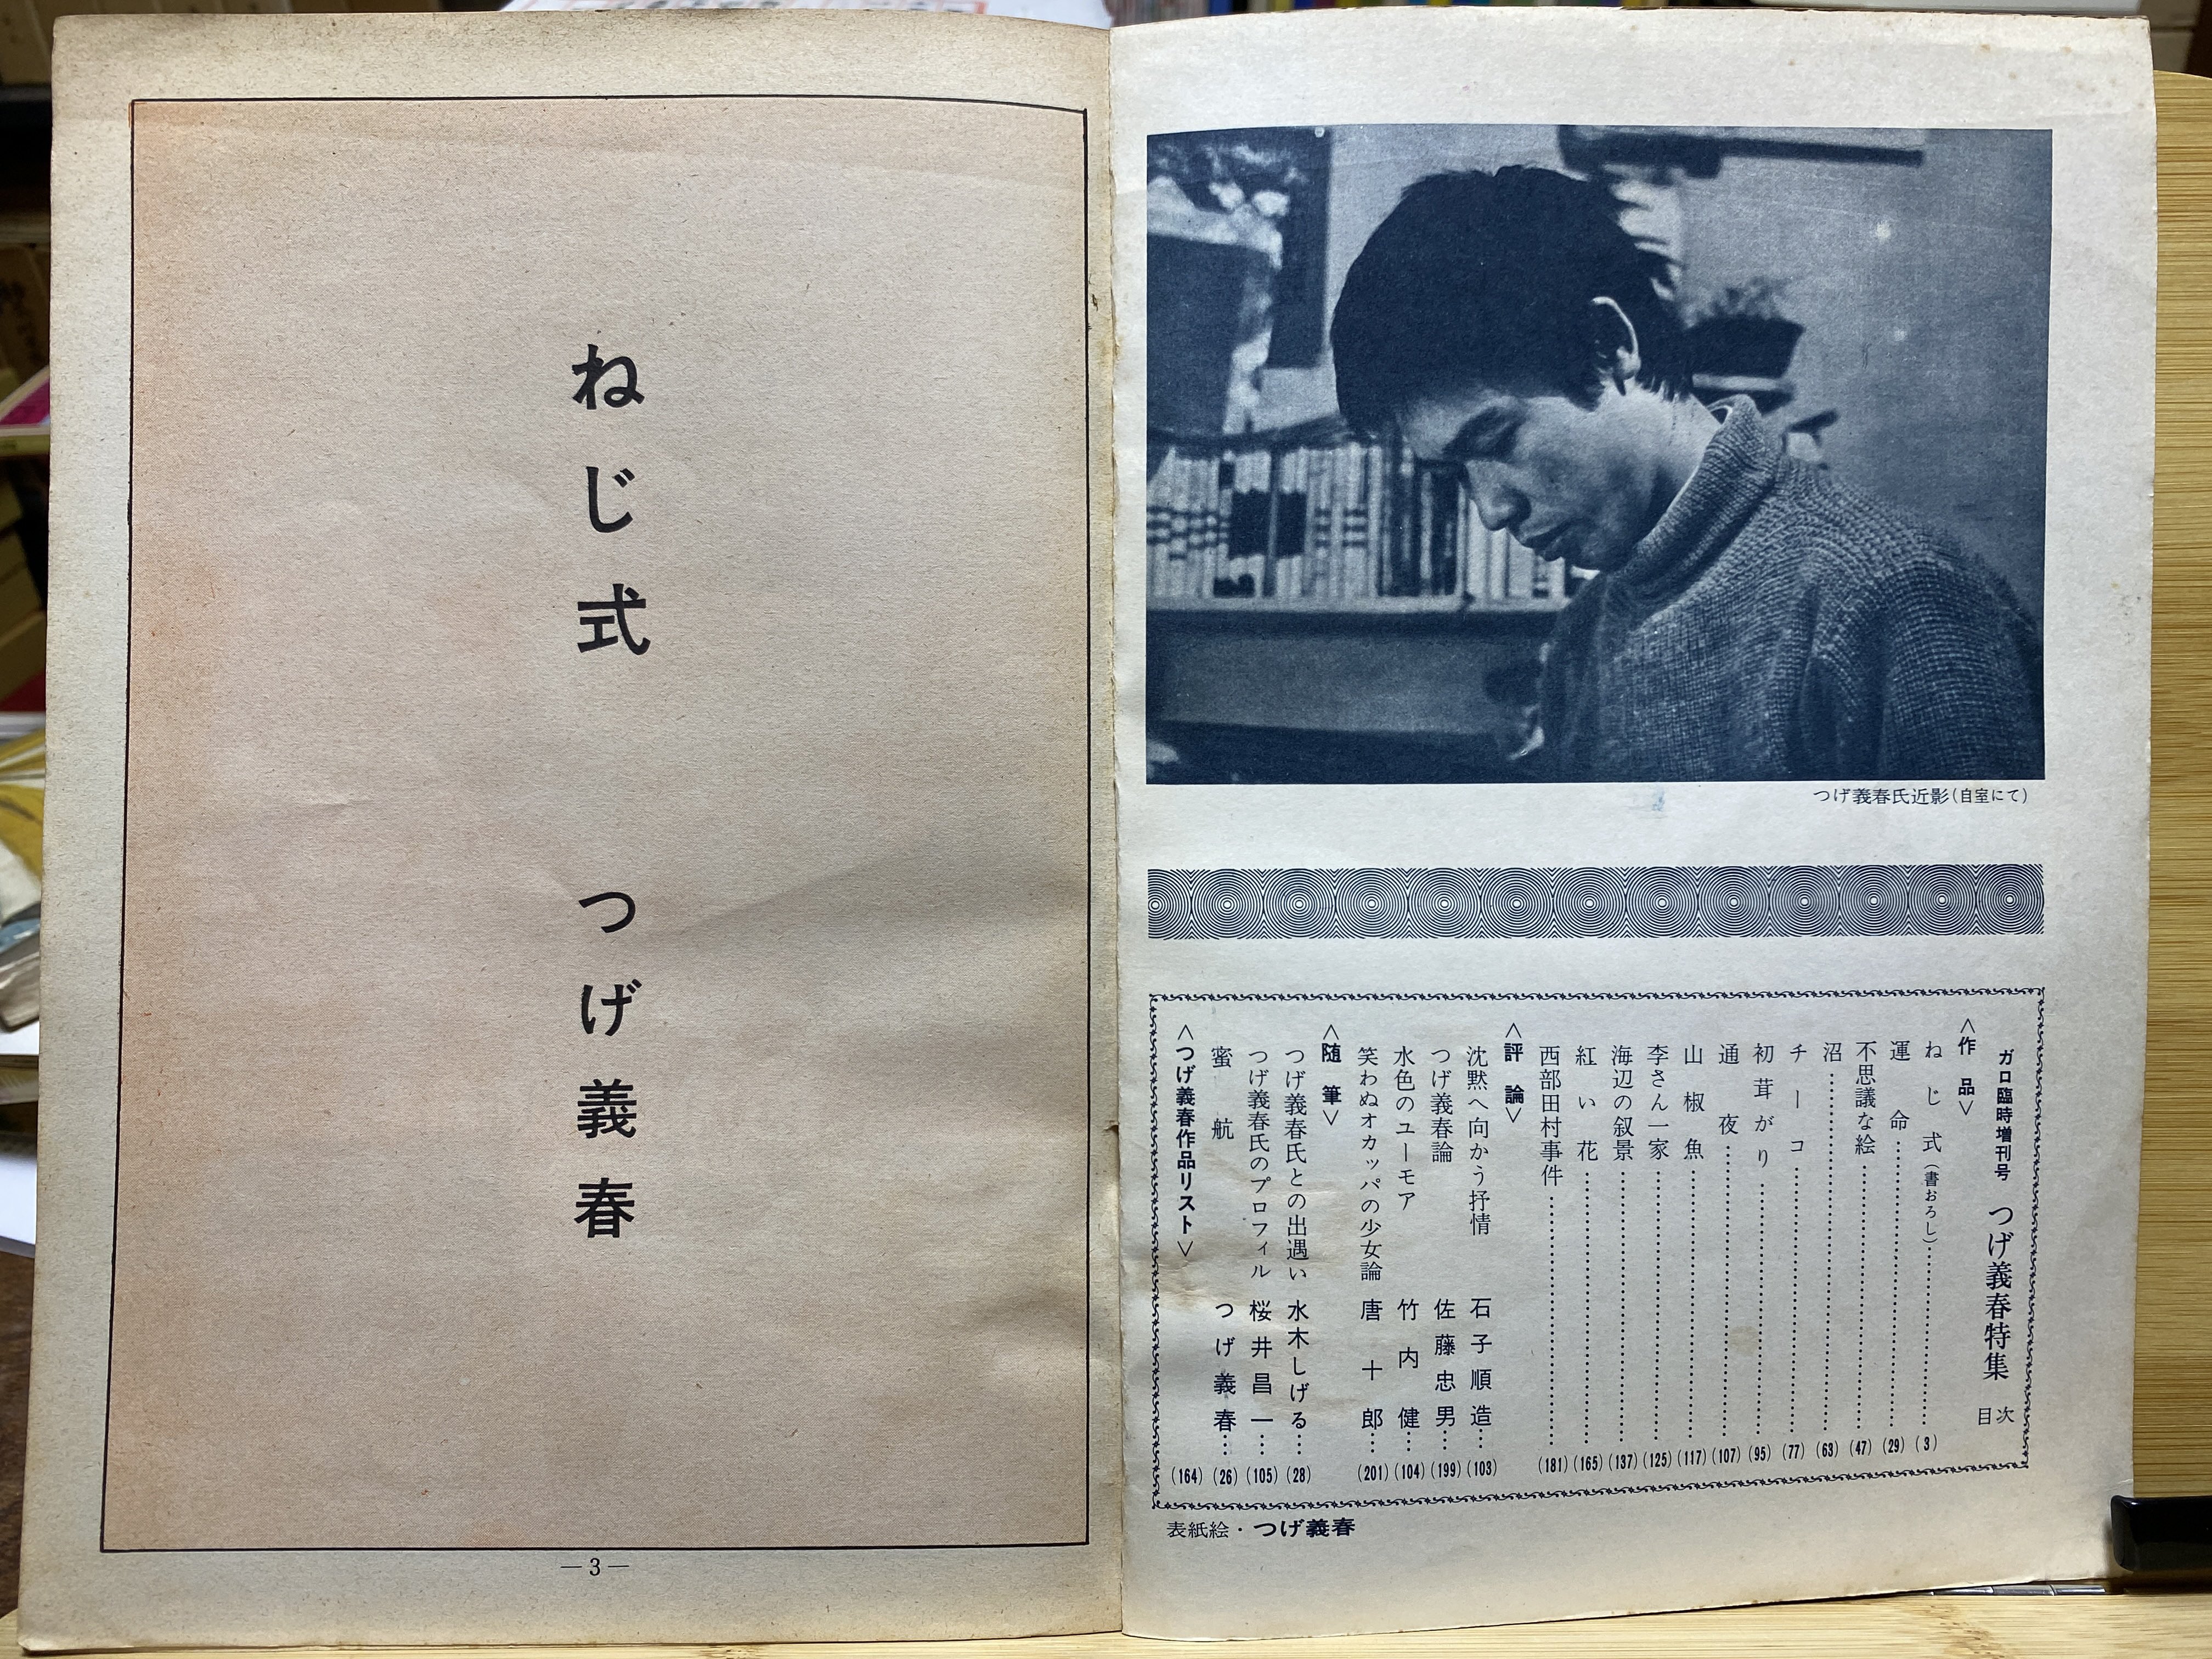 つげ義春氏近影(自室にて)
ガロ臨時増刊号 つげ義春特集 目次
<作品>
ねじ式(書おろし)……(3)
運命……(29)
不思議な絵……(47)
沼……(63)
チーコ……(77)
初茸がり……(95)
通夜……(107)
山椒魚……(117)
李さん一家……(125)
海辺の叙景……(137)
紅い花……(165)
西部田村事件……(181)
<評論>
沈黙へ向かう抒情 石子順造……(103)
つげ義春論 佐藤忠男……(199)
水色のユーモア 竹内健……(104)
笑わぬオカッパの少女論 唐十郎……(201)
<随筆>
つげ義春氏との出遇い 水木しげる……(28)
つげ義春氏のプロフィル 桜井昌一……(105)
蜜航 つげ義春……(26)
<つげ義春作品リスト> (164)
表紙絵・つげ義春
ねじ式 つげ義春
—3—